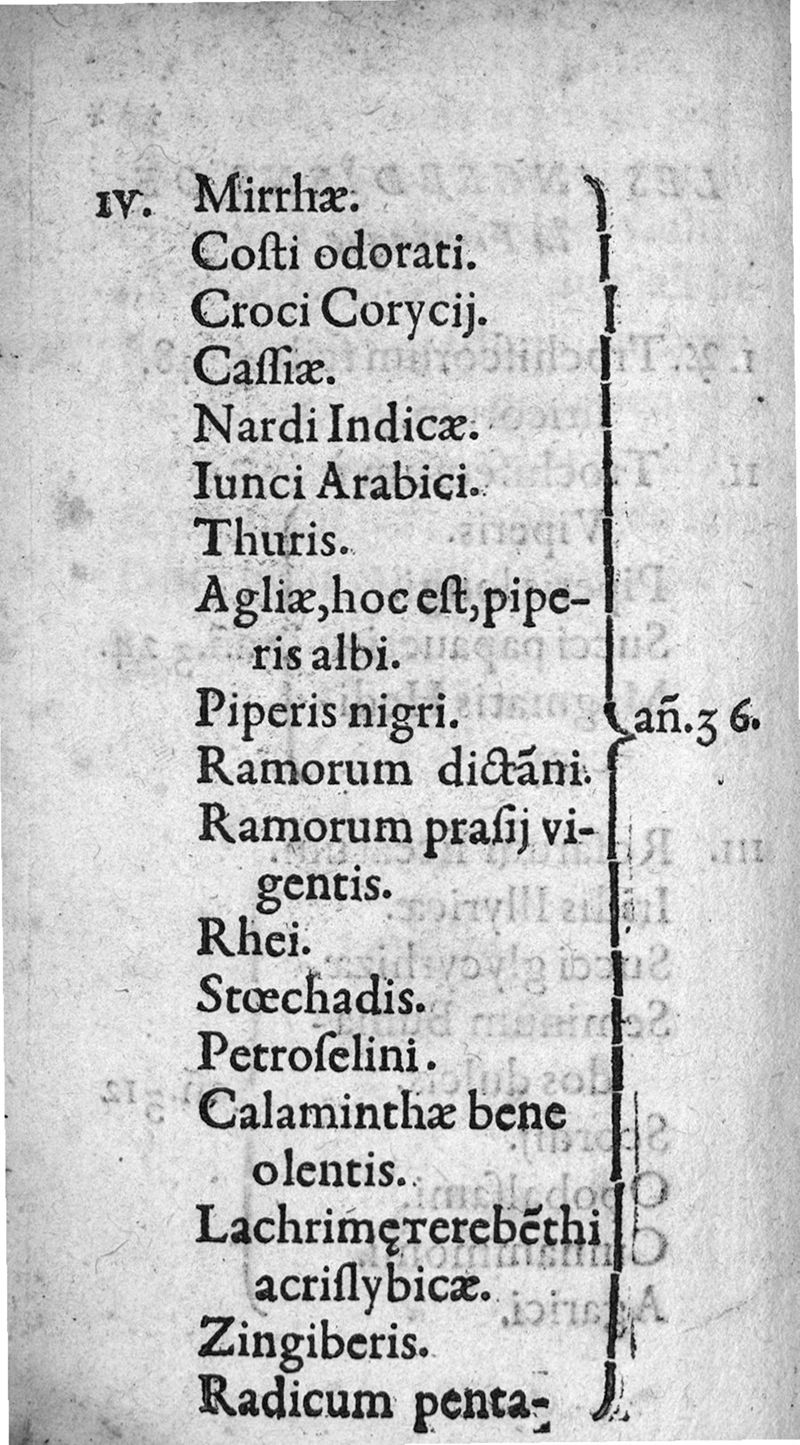 IV. Mirrhæ.
Coſti odorati.
Croci Corycij.
Caſſiæ.
Nardi Indicæ.
Iunci Arabici.
Thuris.
Agliæ, hoc eſt, pipe-
ris albi.
Piperis nigri.
añ. ʒ 6.
Ramorum dictāni.
Ramorum praſij vi-
gentis.
Rhei.
Stœchadis.
Petroſelini.
Calaminthæ bene
olentis.
Lachrimę terebēthi
acriſlybicæ.
Zingiberis.
Radicum penta-